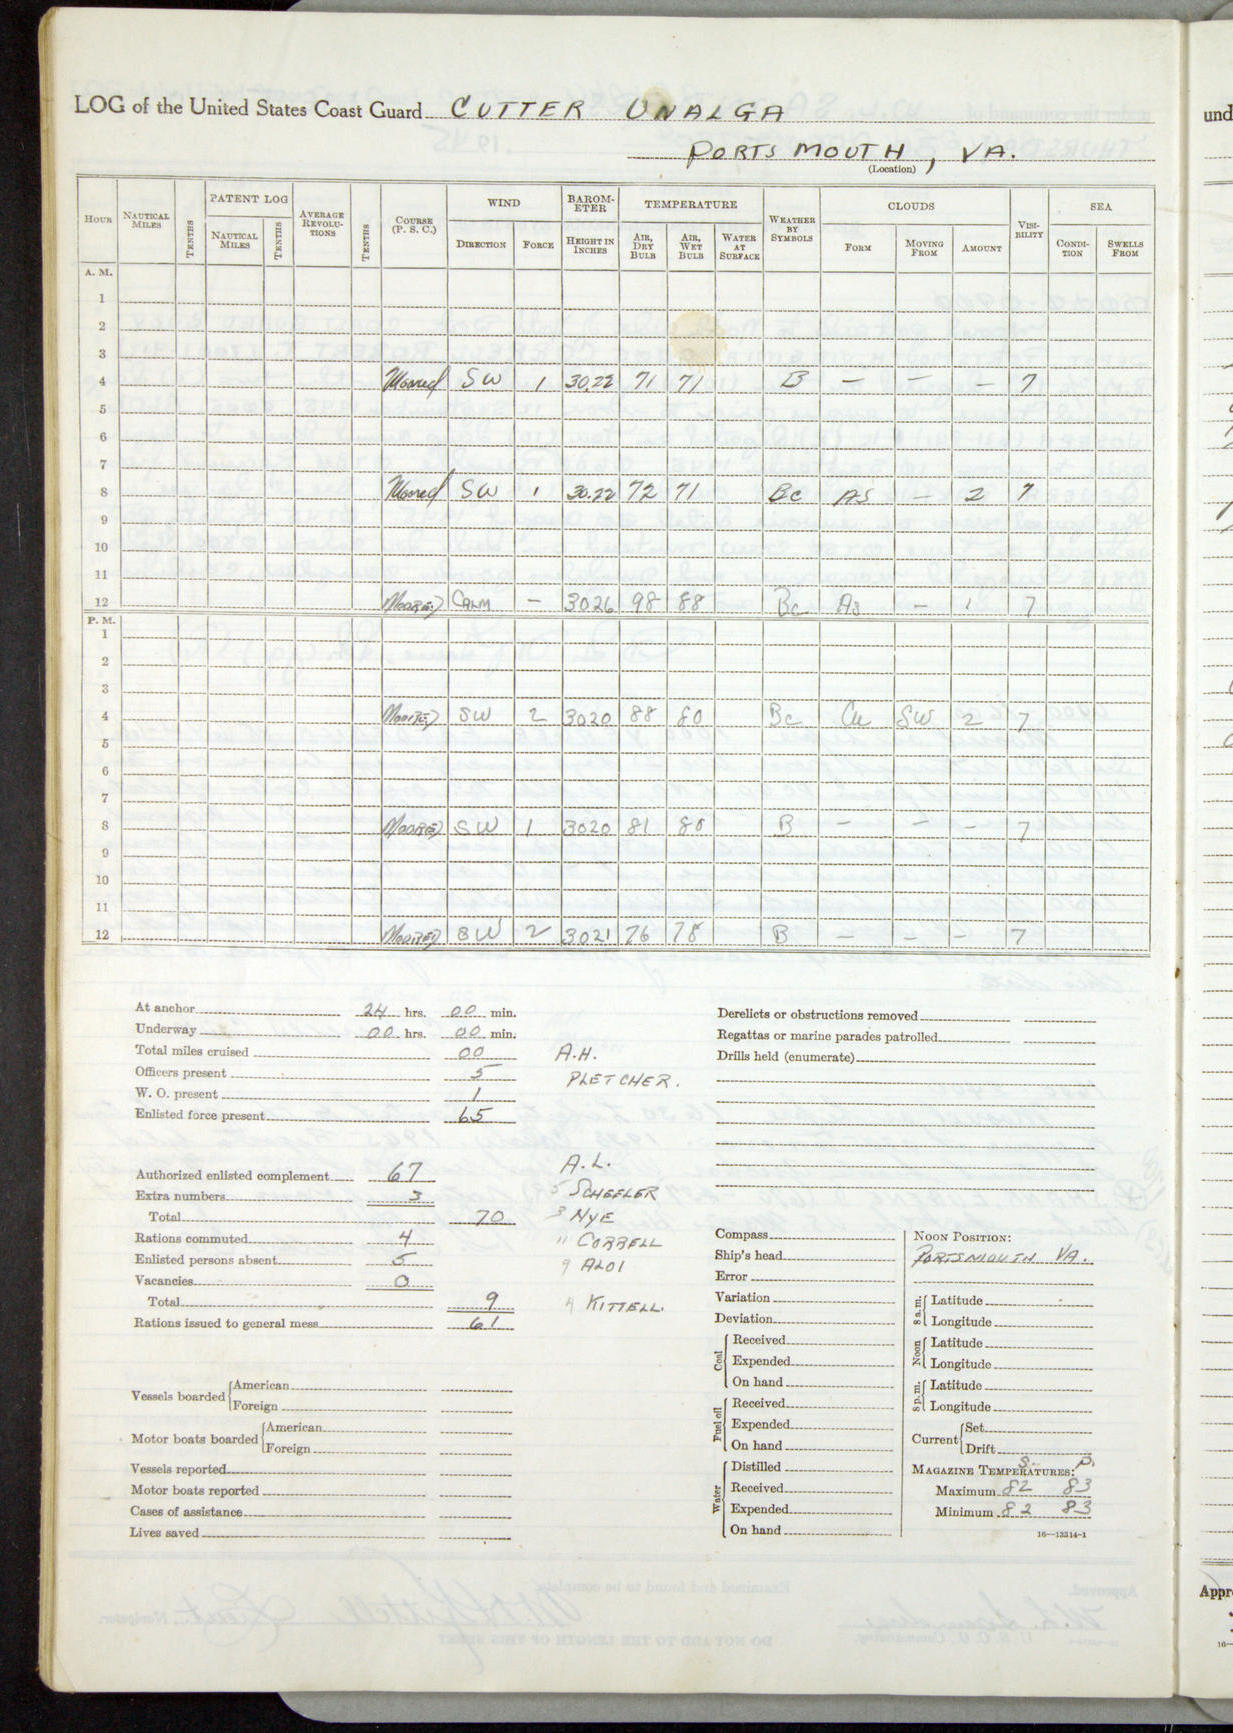 LOG of the United States Coast Guard CUTTER UNALGA
PORTSMOUTH, VA.
(Location)
HOUR NAUTICAL MILES TENTHS PATENT LOG NAUTICAL MILES TENTHS AVERAGE REVOLU-TIONS TENTHS COURSE (P. S. C.) WIND DIRECTION FORCE BAROM-ETER HEIGHT IN INCHES TEMPERATURE AIR, DRY BULB AIR, WET BULB WATER AT SURFACE WEATHER BY SYMBOLS CLOUDS FORM MOVING FROM AMOUNT VISI-BILITY SEA CONDI-TION SWELLS FROM
A. M.
1
2
3
4 Moored SW 1 30.22 71 71 B — — — 7
5
6
7
8 Moored SW 1 30.22 72 71 Bc AS — 2 7
9
10
11
12 MOORED CALM — 3026 98 88 Bc AS — 1 7
P. M.
1
2
3
4 MOORED SW 2 3020 88 80 Bc Cu SW 2 7
5
6
7
8 MOORED SW 1 3020 81 80 B — — — 7
9
10
11
12 MOORED SW 2 3021 76 78 B — — — 7
At anchor 24 hrs. 00 min.
Underway 00 hrs. 00 min.
Total miles cruised 00
Officers present 5
W. O. present 1
Enlisted force present 65
A.H.
PLETCHER.
Authorized enlisted complement 67
Extra numbers 3
Total 70
Rations commuted 4
Enlisted persons absent 5
Vacancies 0
Total 9
Rations issued to general mess 61
A.L.
5 SCHEELER
3 NYE
" CORRELL
9 ALOI
4 KITTELL.
Vessels boarded American
Foreign
Motor boats boarded American
Foreign
Vessels reported
Motor boats reported
Cases of assistance
Lives saved
Derelicts or obstructions removed
Regattas or marine parades patrolled
Drills held (enumerate)
Compass
Ship's head
Error
Variation
Deviation
Coal Received
Expended
On hand
Fuel oil Received
Expended
On hand
Water Distilled
Received
Expended
On hand
NOON POSITION:
PORTSMOUTH VA.
8 a. m. Latitude
Longitude
Noon Latitude
Longitude
8 p. m. Latitude
Longitude
Current Set
Drift
MAGAZINE TEMPERATURES:
S. P.
Maximum 82 83
Minimum 82 83
16—13314-1
und
Appr
16—